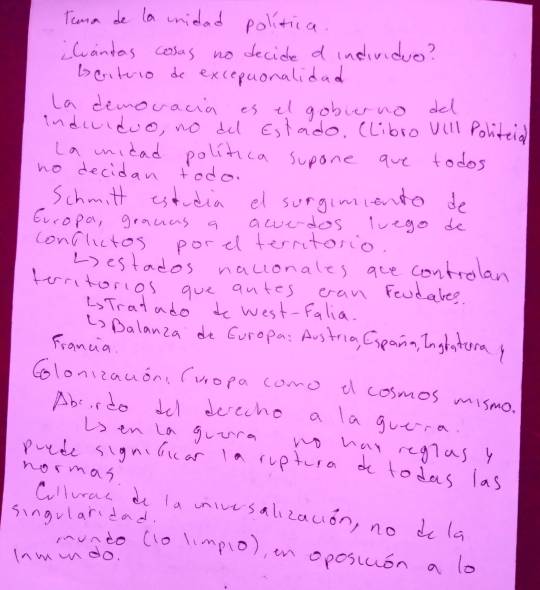 Tema de la unidad política.
¿Cuántas cosas no decide el individuo?
↳ criterio de excepcionalidad
La democracia es el gobierno del
individuo, no del Estado. (Libro VIII Politeia
La unidad política supone que todos
no decidan todo.
Schmitt estudia el surgimiento de
Europa, gracias a acuerdos luego de
conflictos por el territorio.
↳ estados nacionales que controlan
territorios que antes eran feudales.
↳ Tratado de West-Falia.
↳ Balanza de Europa: Austria, España, Inglaterra y
Francia.
Colonización, Europa como el cosmos mismo.
del derecho a la guerra.
↳ en la guerra no hay reglas y
puede significar la ruptura de todas las
normas
Cultura de la universalización, no de la
singularidad.
mundo (lo limpio), en oposición a lo
inmundo.